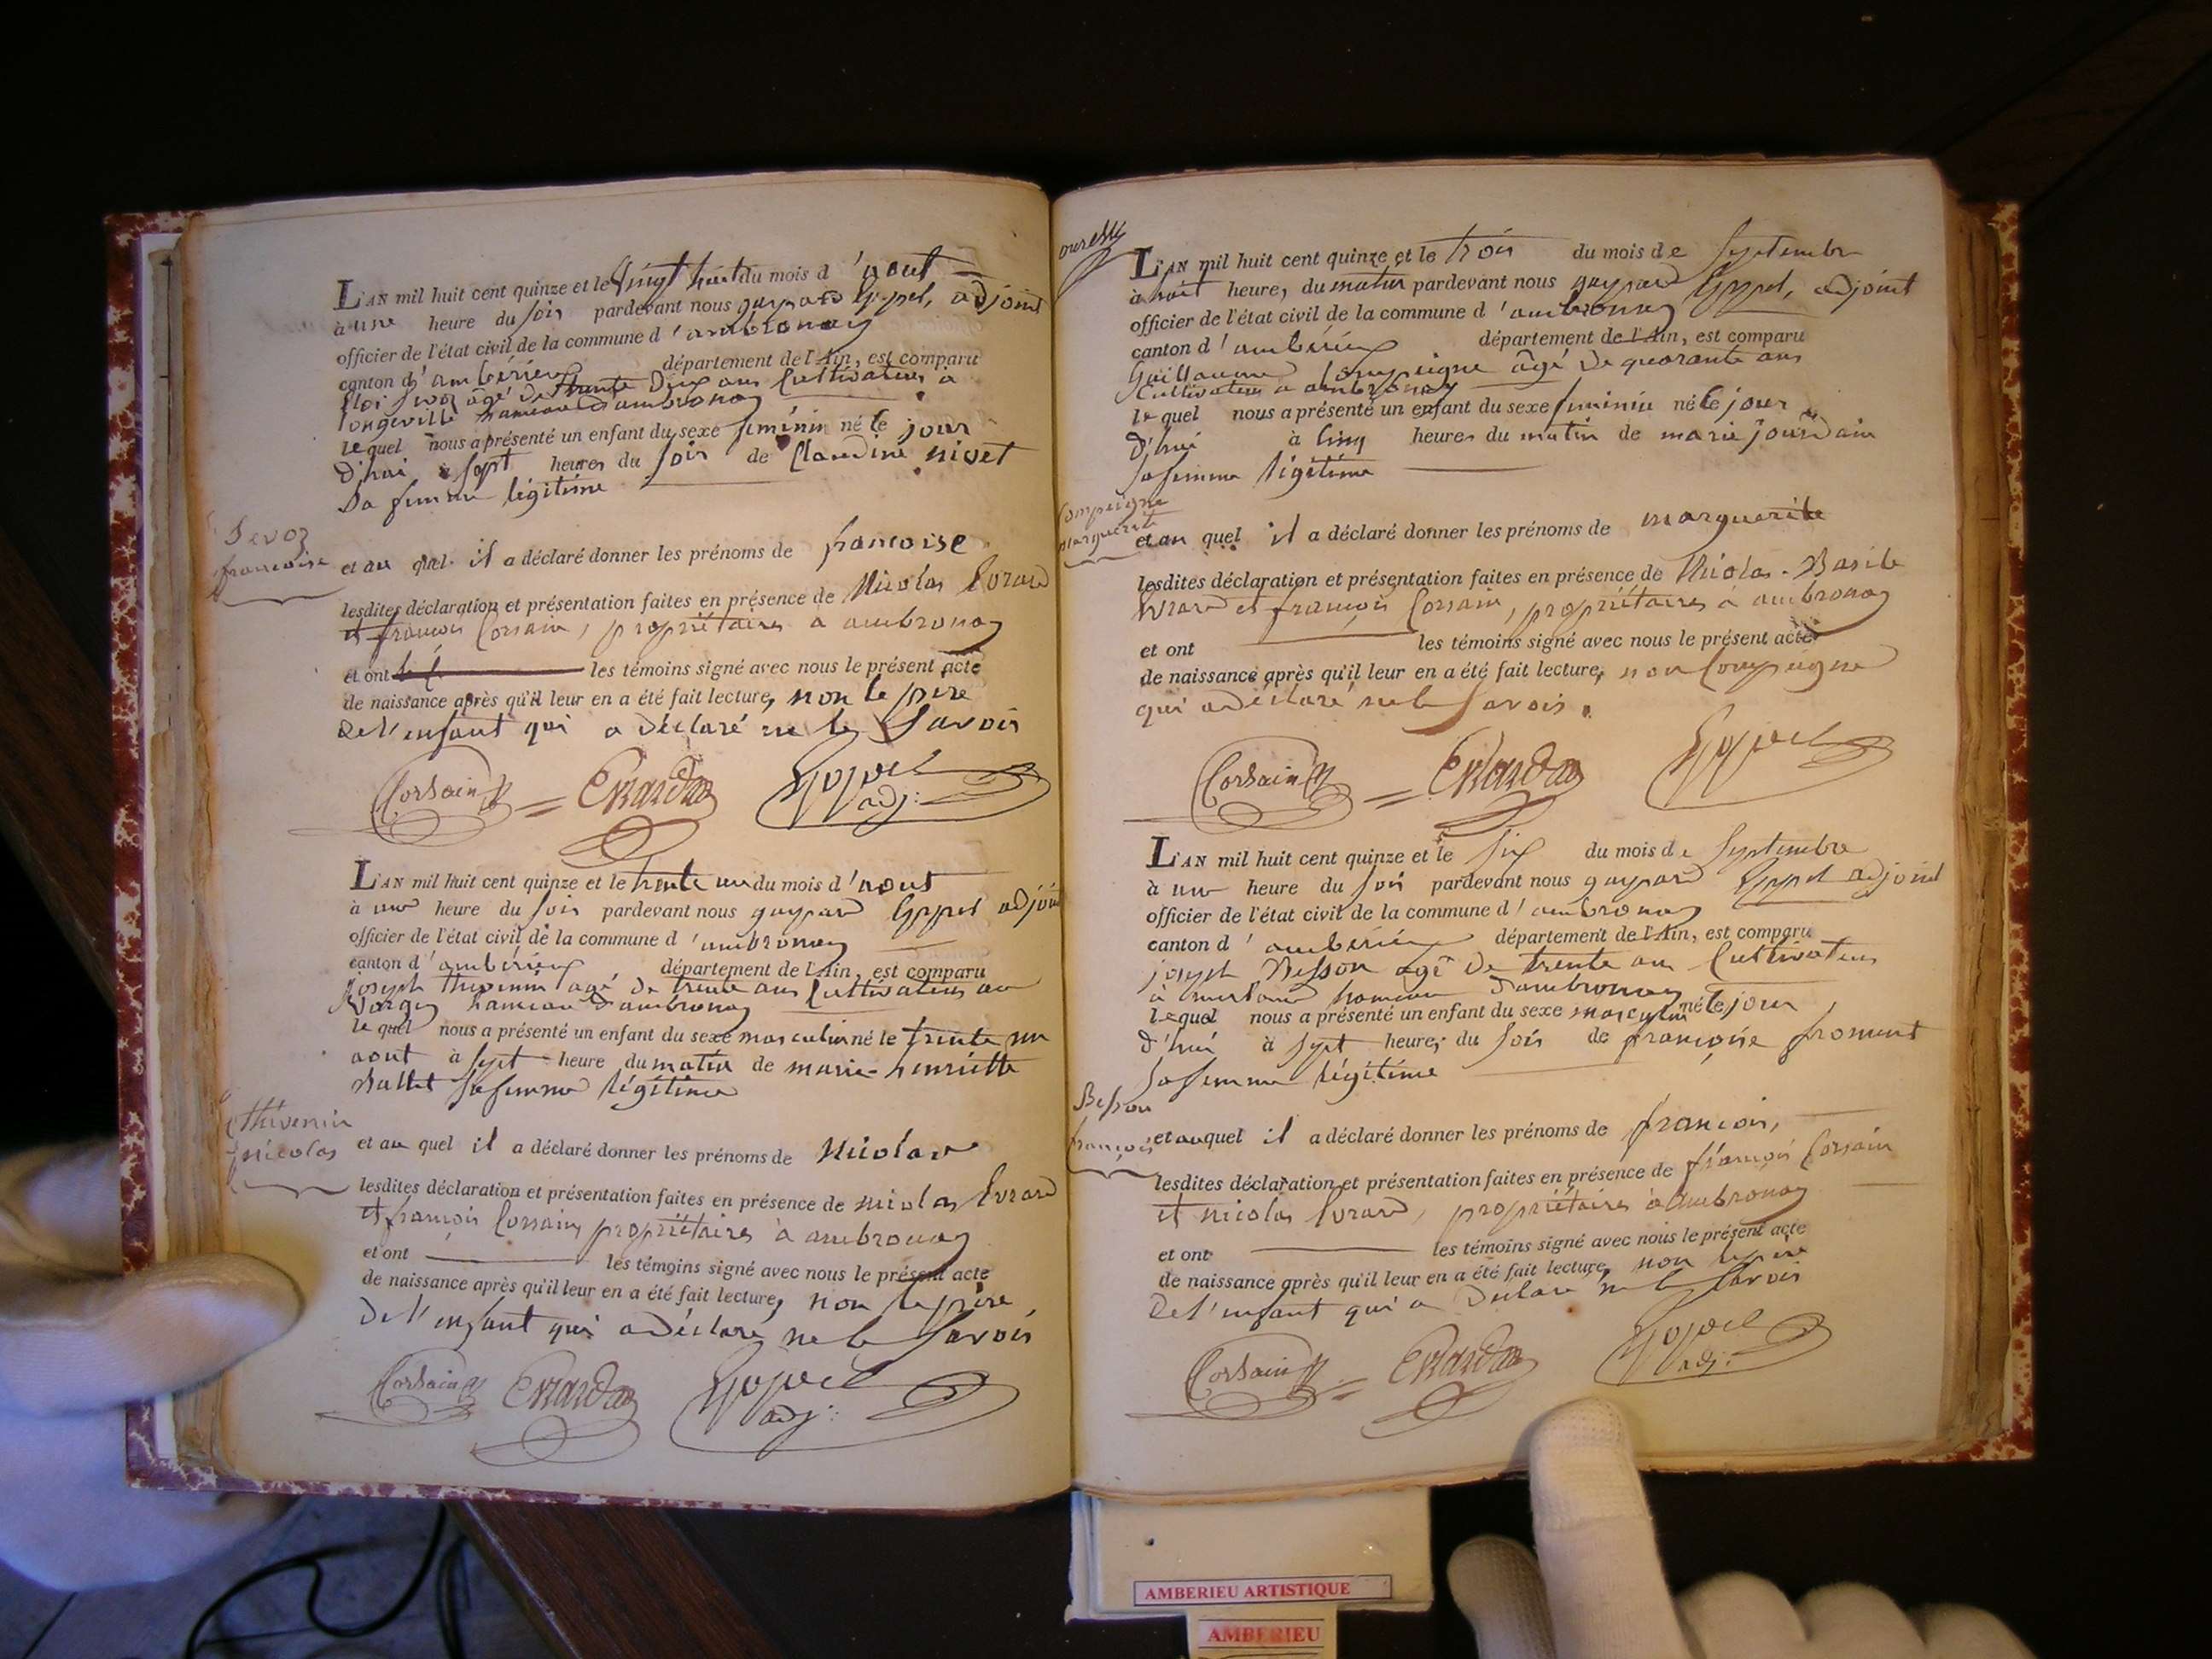 L'AN mil huit cent quinze et le vingt huit du mois d'aout
à une heure du soir pardevant nous gaspard Goppel, adjoint
officier de l'état civil de la commune d'ambronay
canton d'ambérieux département de l'Ain, est comparu
âgé de trente dix ans Cultivateur à
longeville hameau d'ambronay
lequel nous a présenté un enfant du sexe féminin né le jour
d'hui à sept heures du soir de Claudine nivet
Sa femme légitime
françoise
et au quel il a déclaré donner les prénoms de françoise
lesdites déclaration et présentation faites en présence de Nicolas Evrard
et françois Corsain, propriétaires à ambronay
et ont les témoins signé avec nous le présent acte
de naissance après qu'il leur en a été fait lecture, non le père
de l'enfant qui a déclaré ne le Savoir
Corsain Evrard adj:
L'AN mil huit cent quinze et le trente un du mois d'aout
à une heure du soir pardevant nous gaspard adjoint
officier de l'état civil de la commune d'ambronay
canton d'ambérieux département de l'Ain, est comparu
joseph thevenin agé de trente ans Cultivateur au
hameau d'ambronay
le quel nous a présenté un enfant du sexe masculin né le trente un
aout à sept heure du matin de marie henriette
Ballet sa femme légitime
thevenin
nicolas
et au quel il a déclaré donner les prénoms de Nicolas
lesdites déclaration et présentation faites en présence de nicolas Evrard
et françois Corsain propriétaires à ambronay
et ont les témoins signé avec nous le présent acte
de naissance après qu'il leur en a été fait lecture, non le père
de l'enfant qui a déclaré ne le Savoir
Corsain Evrard adj:
L'AN mil huit cent quinze et le trois du mois de Septembre
à huit heure, du matin pardevant nous gaspard adjoint
officier de l'état civil de la commune d'ambronay
canton d'ambérieux département de l'Ain, est comparu
Guillaume Compeigne âgé de quarante ans
Cultivateur a ambronay
le quel nous a présenté un enfant du sexe féminin né le jour
d'hui à cinq heures du matin de marie jourdain
sa femme légitime
Compeigne
marguerite
et au quel il a déclaré donner les prénoms de marguerite
lesdites déclaration et présentation faites en présence de Nicolas-Basile
Evrard et françois Corsain, propriétaires à ambronay
et ont les témoins signé avec nous le présent acte
de naissance après qu'il leur en a été fait lecture, non Compeigne
qui a déclaré ne le Savoir.
Corsain Evrard
L'AN mil huit cent quinze et le six du mois de Septembre
à une heure du soir pardevant nous gaspard adjoint
officier de l'état civil de la commune d'ambronay
canton d'ambérieux département de l'Ain, est comparu
joseph Besson agé de trente ans Cultivateur
à hameau d'ambronay
lequel nous a présenté un enfant du sexe masculin né le jour
d'hui à sept heures du soir de françoise froment
sa femme légitime
Besson
françois
et auquel il a déclaré donner les prénoms de françois,
lesdites déclaration et présentation faites en présence de françois Corsain
et nicolas Evrard, propriétaires à ambronay
et ont les témoins signé avec nous le présent acte
de naissance après qu'il leur en a été fait lecture, non le père
de l'enfant qui a déclaré ne le Savoir
Corsain Evrard adj:
AMBERIEU ARTISTIQUE
AMBERIEU